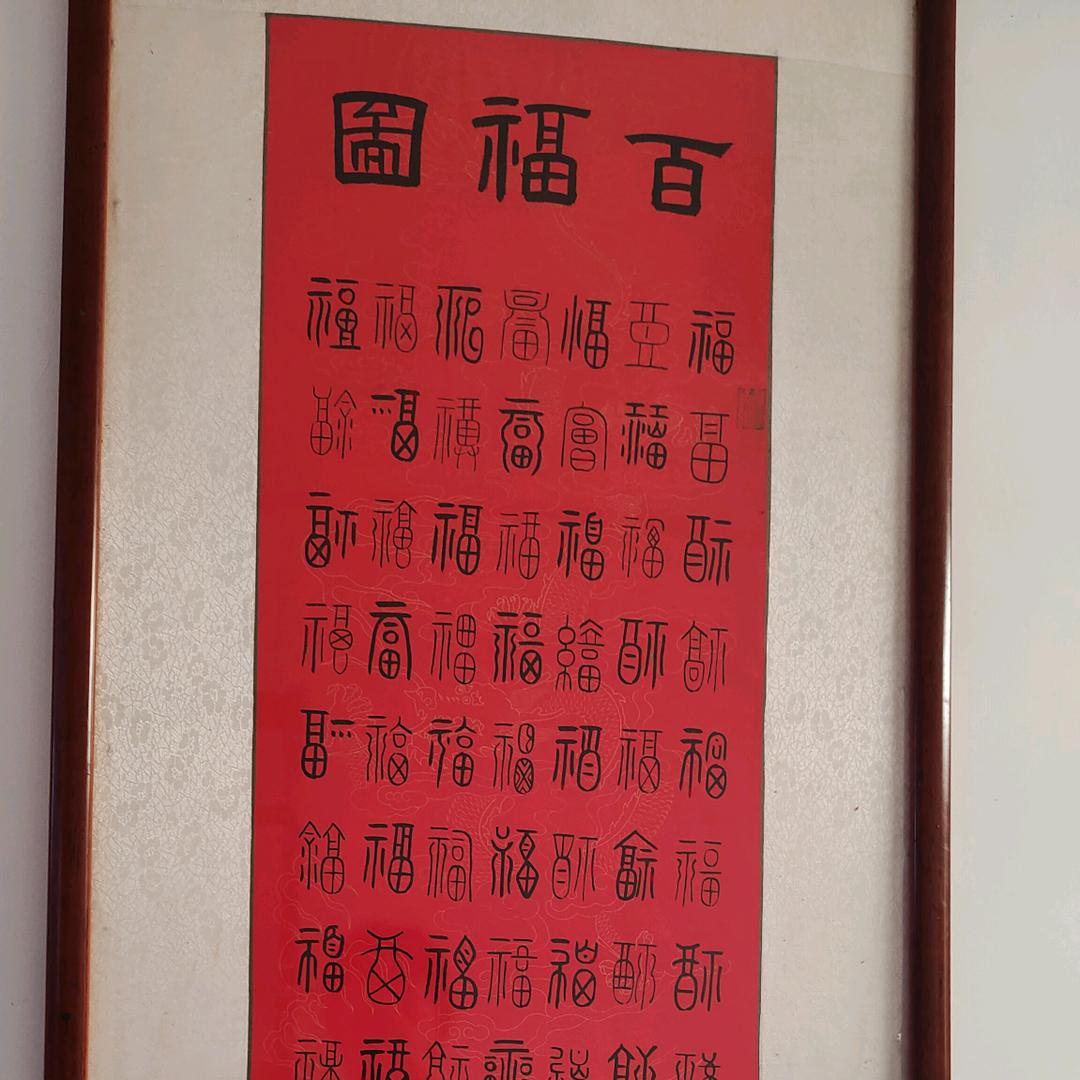 百福圖
福福福福福福福
福福福福福福福
福福福福福福福
福福福福福福福
福福福福福福福
福福福福福福福
福福福福福福福